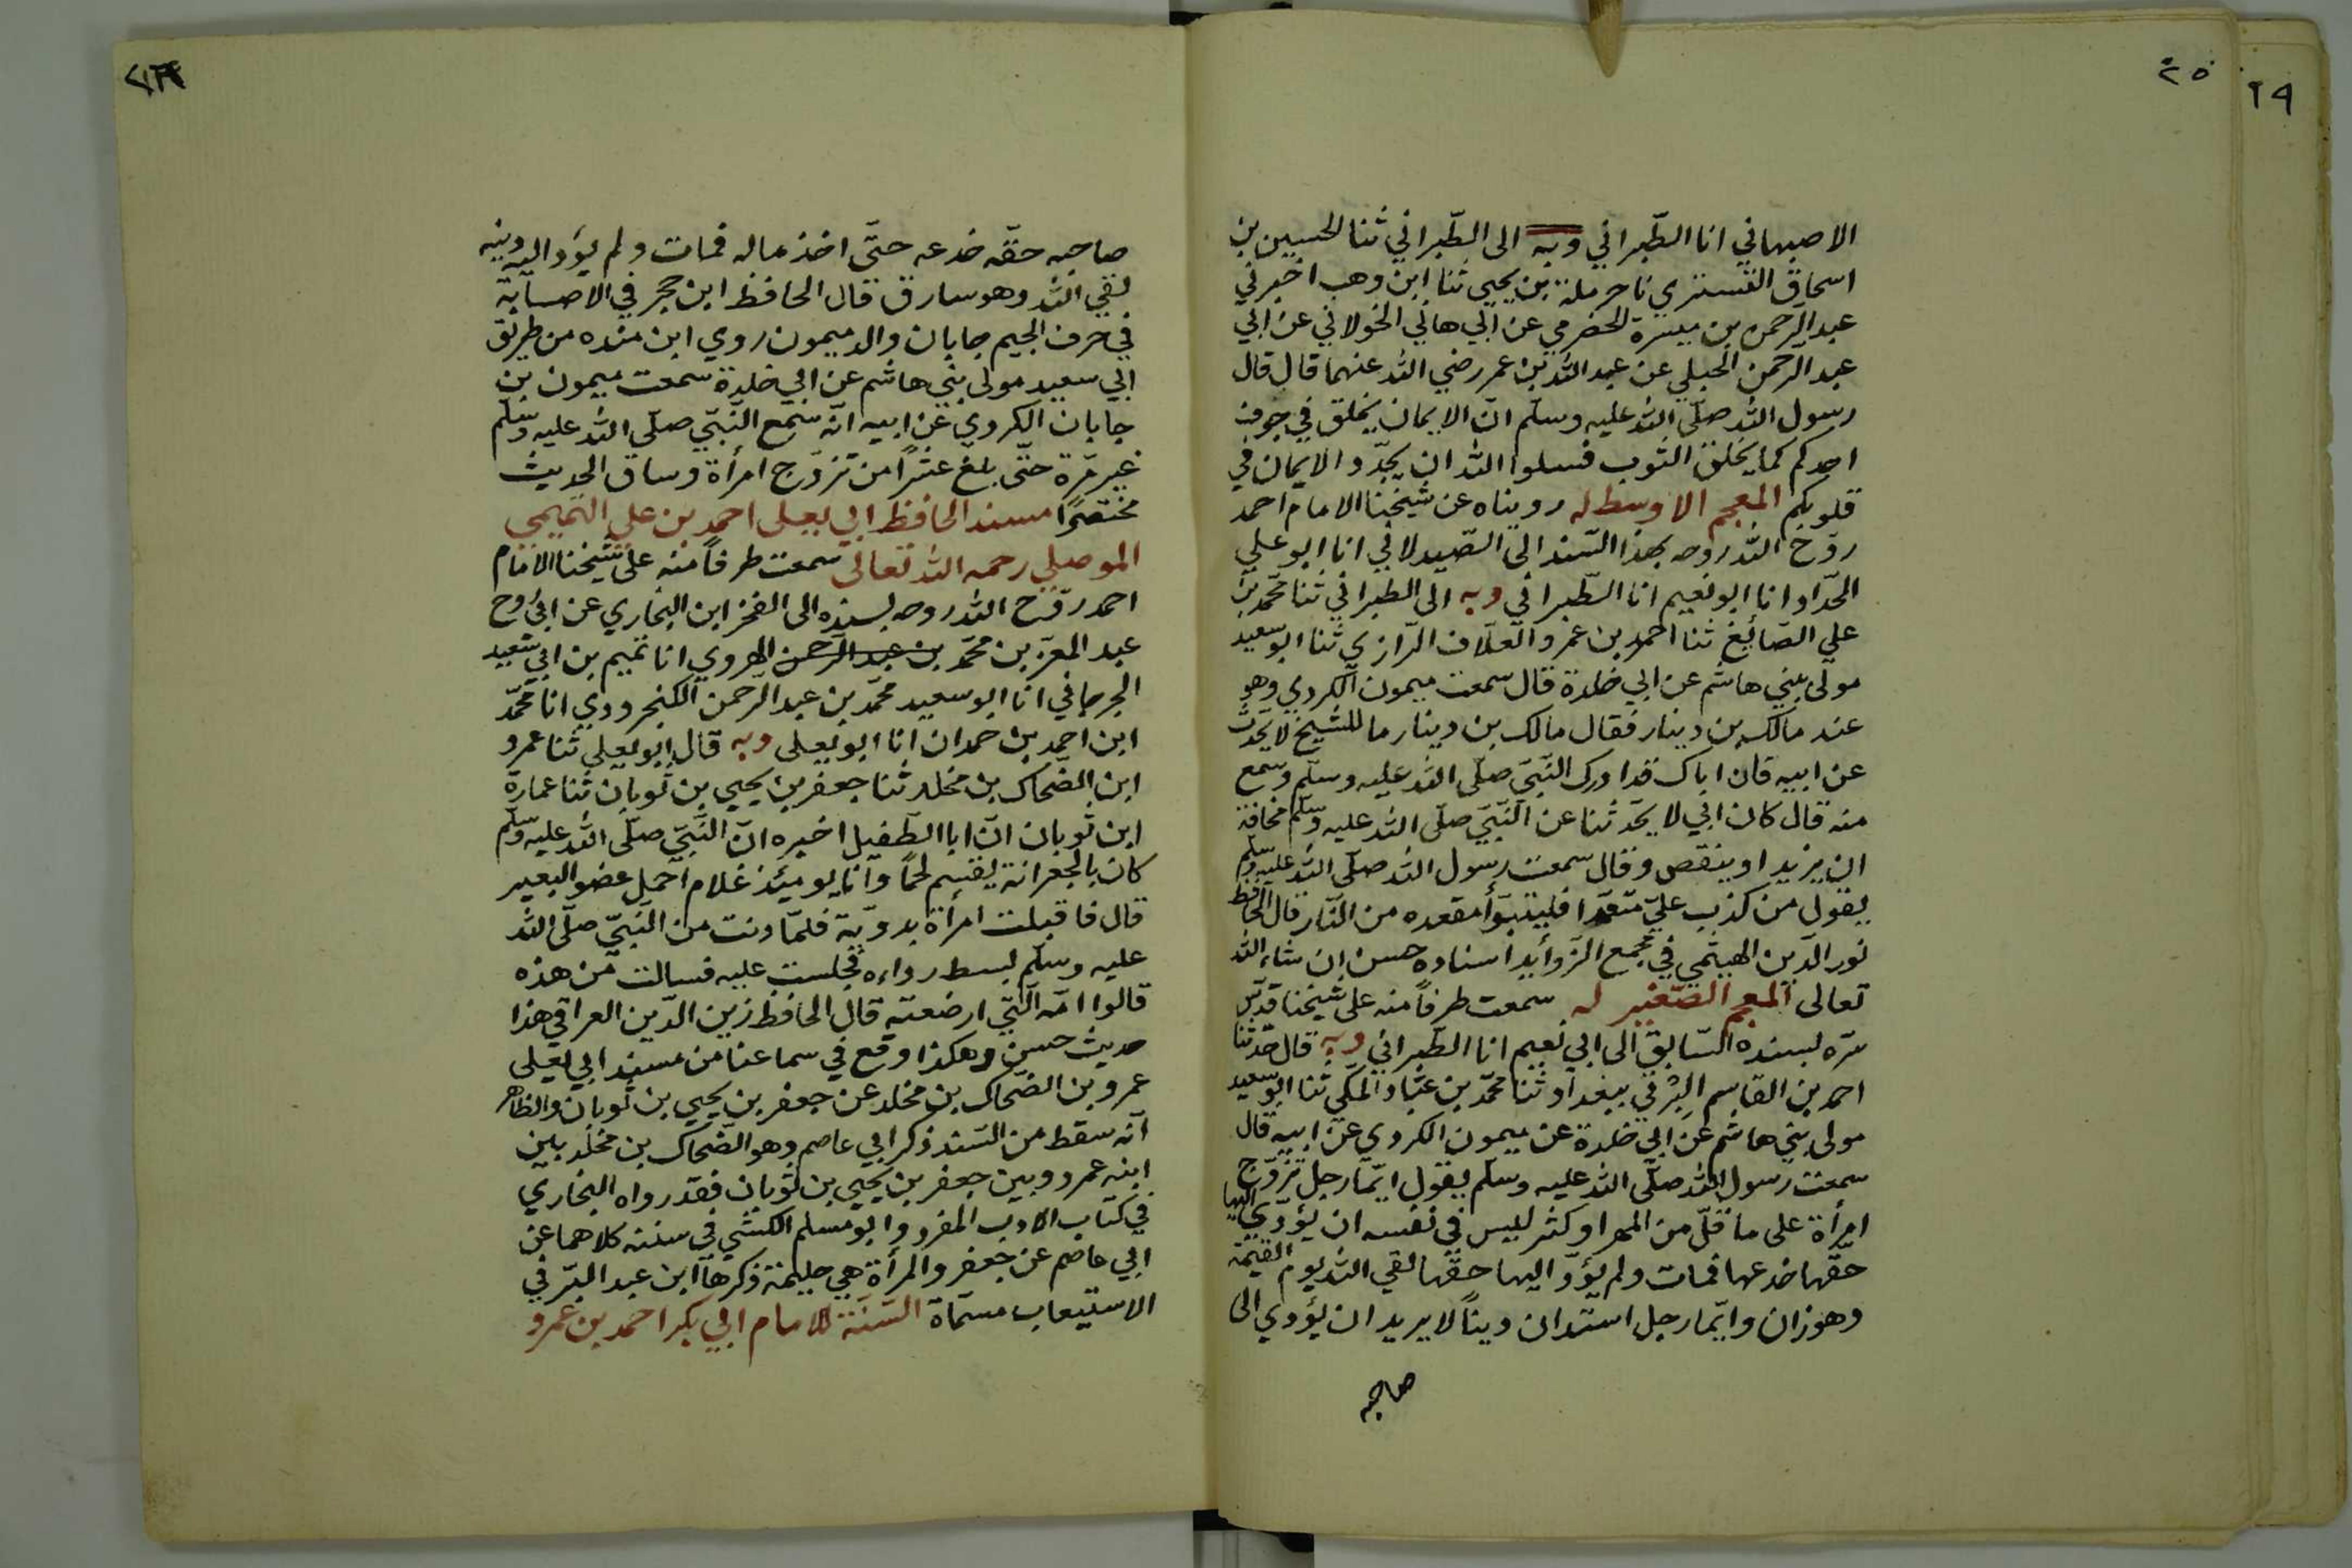 ٢٥
٢٩
الاصبهاني انا الطّبراني وبه الى الطّبراني ثنا الحسين بن
اسحاق التستري نا حرملة بن يحيى ثنا ابن وهب اخبرني
عبد الرحمن بن ميسرة الحضرمي عن ابي هاني الخولاني عن ابي
عبد الرحمن الحبلي عن عبد الله بن عمر رضي الله عنهما قال قال
رسول الله صلّى الله عليه وسلّم انّ الايمان يخلق في جوف
احدكم كما يخلق الثوب فسلوا الله ان يجدّد الايمان في
قلوبكم المعجم الاوسط له رويناه عن شيخنا الامام احمد
روّح الله روحه بهذا السّند الى الصّيدلاني انا ابو علي
الحدّاد انا ابو نعيم انا الطّبراني وبه الى الطبراني ثنا محمّد بن
علي الصّائغ ثنا احمد بن عمرو العلّاف الرّازي ثنا ابو سعيد
مولى بني هاشم عن ابي خلدة قال سمعت ميمون الكردي وهو
عند مالك بن دينار فقال مالك بن دينار ما للشيخ لا يحدّث
عن ابيه فان اباك قد ادرك النّبيّ صلّى الله عليه وسلّم وسمع
منه قال كان ابي لا يحدّثنا عن النّبيّ صلّى الله عليه وسلّم مخافة
ان يزيد او ينقص وقال سمعت رسول الله صلّى الله عليه وسلّم
يقول من كذب عليّ متعمّدا فليتبوّأ مقعده من النّار قال الحافظ
نور الدّين الهيثمي في مجمع الزّوايد اسناده حسن ان شاء الله
تعالى المعجم الصّغير له سمعت طرفاً منه على شيخنا قدّس
سرّه بسنده السّابق الى ابي نعيم انا الطّبراني وبه قال حدّثنا
احمد بن القاسم البِرْتي ببغداد ثنا محمّد بن عبّاد المكي ثنا ابو سعيد
مولى بني هاشم عن ابي خلدة عن ميمون الكردي عن ابيه قال
سمعت رسول الله صلّى الله عليه وسلّم يقول ايّما رجل تزوّج
امرأة على ما قلّ من المهر او كثر ليس في نفسه ان يؤدّي اليها
حقّها خدعها فمات ولم يؤدّ اليها حقّها لقي الله يوم القيمة
وهو زان وايّما رجل استدان ديناً لا يريد ان يؤدي الى
صاحبه
صاحبه حقّه خدعه حتّى اخذ ماله فمات ولم يؤد اليه دينه
لقي الله وهو سارق قال الحافظ ابن حجر في الاصابة
في حرف الجيم جابان والد ميمون روى ابن منده من طريق
ابي سعيد مولى بني هاشم عن ابي خلدة سمعت ميمون بن
جابان الكردي عن ابيه انّه سمع النّبيّ صلّى الله عليه وسلّم
غير مرّة حتّى بلغ عشرًا من تزوّج امرأة وساق الحديث
مختصرًا مسند الحافظ ابي يعلى احمد بن علي التميمي
الموصلي رحمه الله تعالى سمعت طرفاً منه على شيخنا الامام
احمد روّح الله روحه بسنده الى الفخر ابن البخاري عن ابي روح
عبد المعز بن محمّد بن عبد الرّحمن الهروي انا تميم بن ابي سعيد
الجرجاني انا ابو سعيد محمّد بن عبد الرّحمن الكنجرودي انا محمّد
ابن احمد بن حمدان انا ابو يعلى وبه قال ابو يعلى ثنا عمرو
ابن الضّحاك بن مخلد ثنا جعفر بن يحيي بن ثوبان ثنا عمارة
ابن ثوبان انّ ابا الطّفيل اخبره انّ النّبيّ صلّى الله عليه وسلّم
كان بالجعرانة يقسم لحمًا وانا يومئذ غلام احمل عضو البعير
قال فاقبلت امرأة بدويّة فلمّا دنت من النّبيّ صلّى الله
عليه وسلّم بسط رداءه فجلست عليه فسالت من هذه
قالوا امّه الّتي ارضعته قال الحافظ زين الدّين العراقي هذا
حديث حسن وهكذا وقع في سماعنا من مسند ابي يعلى
عمرو بن الضّحاك بن مخلد عن جعفر بن يحيي بن ثوبان والظاهر
انّه سقط من السّند ذكر ابي عاصم وهو الضّحاك بن مخلّد بين
ابنه عمرو وبين جعفر بن يحيي بن ثوبان فقد رواه البخاري
في كتاب الادب المفرد وابو مسلم الكشّي في سننه كلاهما عن
ابي عاصم عن جعفر والمرأة هي حليمة ذكرها ابن عبد البرّ في
الاستيعاب مسمّاة السّنّة للامام ابي بكر احمد بن عمرو